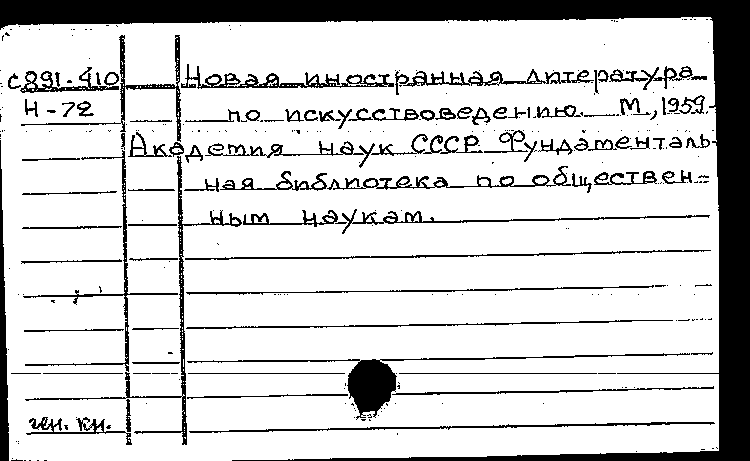 с891.410 Новая иностранная литература
Н-72 по искусствоведению. М., 1959-
Академия наук СССР. Фундаменталь-
ная библиотека по обществен-
ным наукам.
чит. кн.